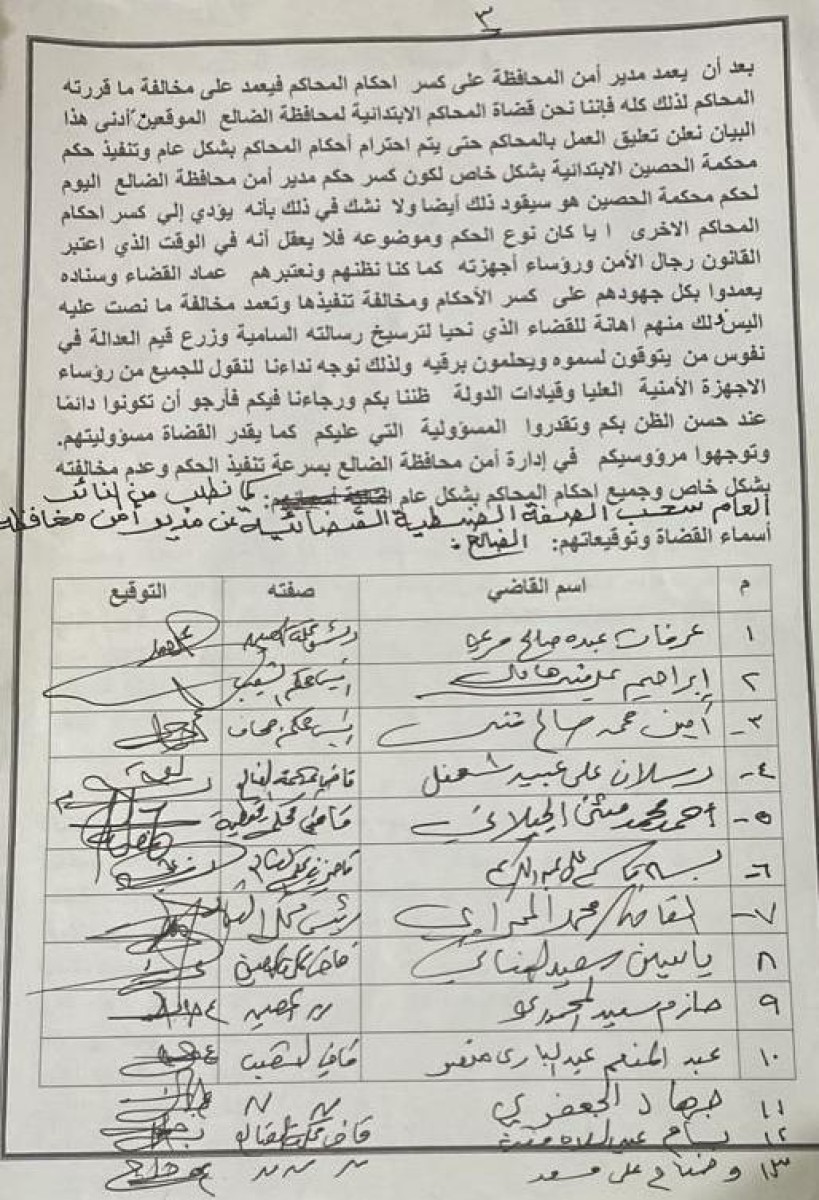 ٣
بعد أن يعمد مدير أمن المحافظة على كسر احكام المحاكم فيعمد على مخالفة ما قررته
المحاكم لذلك كله فإننا نحن قضاة المحاكم الابتدائية لمحافظة الضالع الموقعين أدنى هذا
البيان نعلن تعليق العمل بالمحاكم حتى يتم احترام أحكام المحاكم بشكل عام وتنفيذ حكم
محكمة الحصين الابتدائية بشكل خاص لكون كسر حكم مدير أمن محافظة الضالع اليوم
لحكم محكمة الحصين هو سيقود ذلك أيضا ولا نشك في ذلك بأنه يؤدي إلي كسر احكام
المحاكم الاخرى ا يا كان نوع الحكم وموضوعه فلا يعقل أنه في الوقت الذي اعتبر
القانون رجال الأمن ورؤساء أجهزته كما كنا نظنهم ونعتبرهم عماد القضاء وسناده
يعمدوا بكل جهودهم على كسر الأحكام ومخالفة تنفيذها وتعمد مخالفة ما نصت عليه
اليس ذلك منهم اهانة للقضاء الذي نحيا لترسيخ رسالته السامية وزرع قيم العدالة في
نفوس من يتوقون لسموه ويحلمون برقيه ولذلك نوجه نداءنا لنقول للجميع من رؤساء
الاجهزة الأمنية العليا وقيادات الدولة ظننا بكم ورجاءنا فيكم فأرجو أن تكونوا دائمًا
عند حسن الظن بكم وتقدروا المسؤولية التي عليكم كما يقدر القضاة مسؤوليتهم.
وتوجهوا مرؤوسيكم في إدارة أمن محافظة الضالع بسرعة تنفيذ الحكم وعدم مخالفته
بشكل خاص وجميع احكام المحاكم بشكل عام : كما نطلب من النائب
العام سحب الصفة الضبطية القضائية عن مدير أمن محافظة
أسماء القضاة وتوقيعاتهم: الضالع .
م اسم القاضي صفته التوقيع
١ عرفات عبده صالح
٢ إبراهيم علي
٣- أمين محمد صالح رئيس محكمة جحاف
٤- رسلان علي عبيد قاضي محكمة الضالع
٥- أحمد محمد مثنى الجيلاني قاضي محكمة
٦-
٧- القاضي/ محمد رئيس محكمة
٨ ياسين سعيد قاضي محكمة الحصين
٩ حازم سعيد 〃 الحصين
١٠ عبد المنعم عبدالباري قاضي الشعيب
١١ جهاد الجعفري 〃 〃
١٢ بسام عبدالسلام قاضي محكمة الضالع
١٣ وضاح علي مسعد 〃 〃 〃